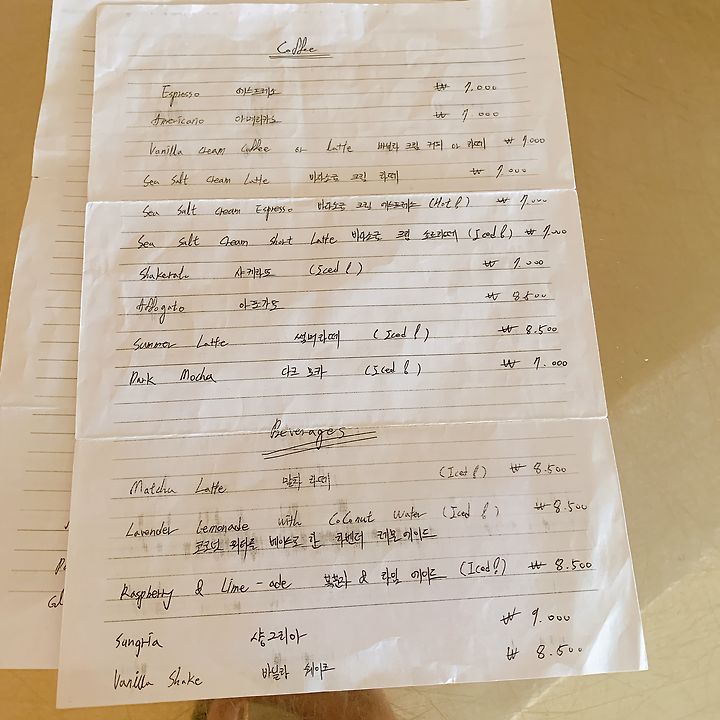 Coffee
Espresso 에스프레소 ₩ 7.000
Americano 아메리카노 ₩ 7.000
Vanilla Cream Coffee or Latte 바닐라 크림 커피 or 라떼 ₩ 7.000
Sea Salt Cream Latte 바다소금 크림 라떼 ₩ 7.000
Sea Salt Cream Espresso 바다소금 크림 에스프레소 (Hot !) ₩ 7.000
Sea Salt Cream Short Latte 바다소금 크림 숏라떼 (Iced !) ₩ 7.000
Shakerato 샤케라또 (Iced !) ₩ 7.000
Affogato 아포가토 ₩ 8.500
Summer Latte 썸머라떼 (Iced !) ₩ 8.500
Dark Mocha 다크 모카 (Iced !) ₩ 7.000
Beverages
Matcha Latte 말차 라떼 (Iced !) ₩ 8.500
Lavender Lemonade with Coconut Water (Iced !) ₩ 8.500
코코넛 워터를 베이스로 한 라벤더 레몬에이드
Raspberry & Lime-ade 복분자 & 라임 에이드 (Iced !) ₩ 8.500
Sangria 샹그리아 ₩ 9.000
Vanilla Shake 바닐라 쉐이크 ₩ 8.500